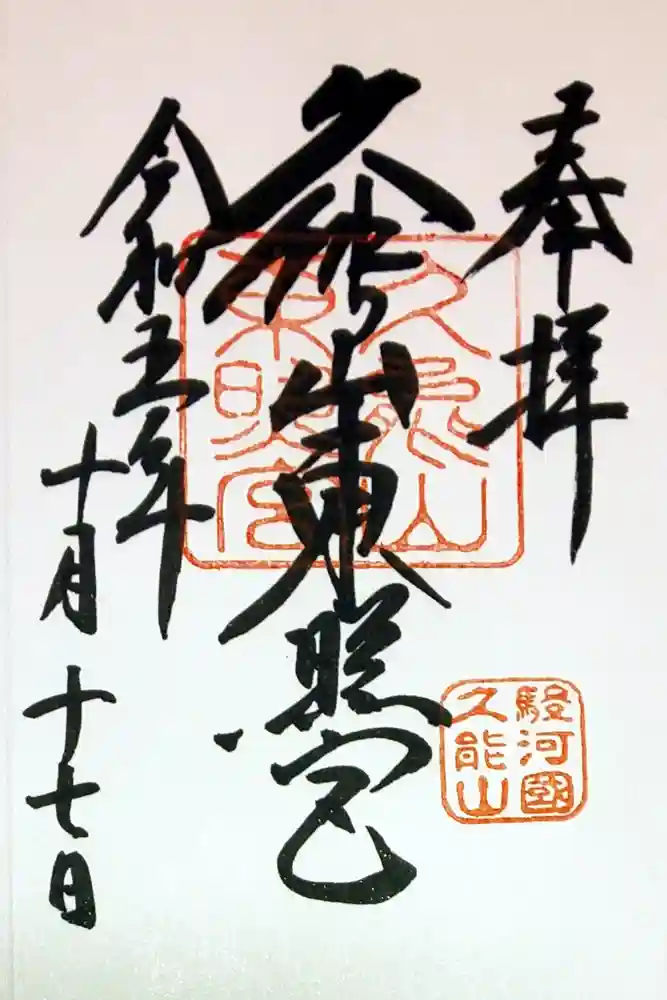 奉拝
久能山東照宮
令和五年
十月十七日
久能山
東照宮
駿河國
久能山